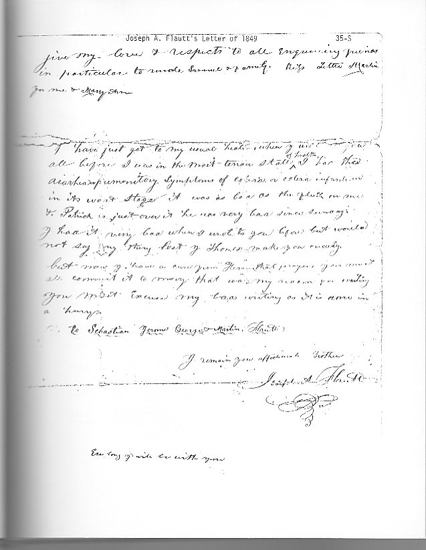 Joseph A. Flautt's Letter of 1849 35-S
give my love & respects to all Enquiring friends
in particular to uncle Samuel & family Kiss Little Martin
for me & Mary Ann
I have just got to my usual health when I
all before I was in the most state of health I had the
diarhea premonitory symptoms of colera or colera infantum
in its worst stage it was as bad as the on me
& Patrick is just over it he was very bad since sunday
I had it very bad when I wrote to you before but would
not say any thing lest I should make you uneasy
but now I have a that you must
all commit it to mary that was my reason for writing
you must Excuse my bad writing as it is done in
a hurry
to Sebastian Jerome George & Martin Flautt
I remain your affectionate brother
Joseph A. Flautt
Ere long I will be with you